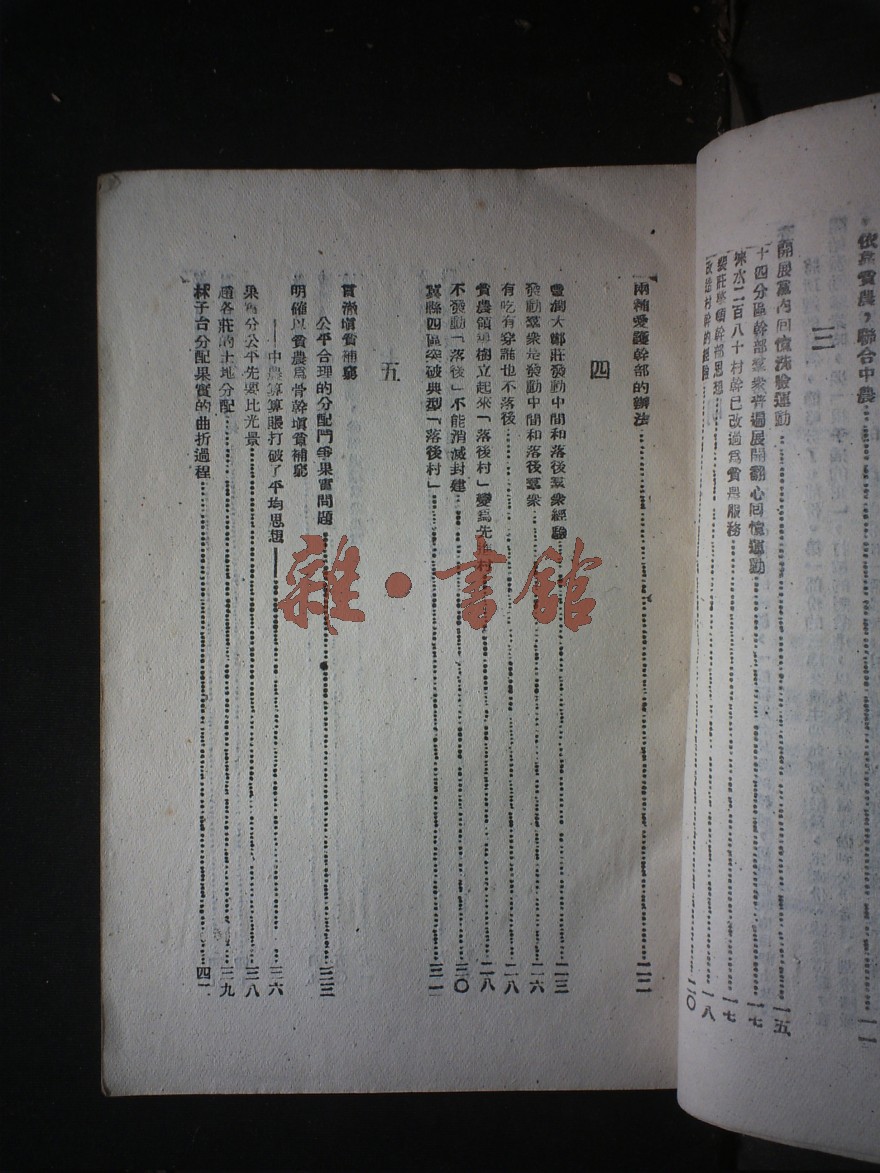 ，依靠貧農，聯合中農……一一
三
開展黨內回憶洗臉運動……一五
十四分區幹部羣衆普遍展開翻心回憶運動……一七
淶水二百八十村幹已改過爲貧農服務……一七
幹部思想……一八
改造村幹的經驗……二〇
兩種愛護幹部的辦法……二二
四
豐潤大鄉莊發動中間和落後羣衆經驗……二三
發動羣衆是發動中間和落後羣衆……二六
有吃有穿誰也不落後……二八
貧農領導樹立起來「落後村」變爲先進村……二八
不發動「落後」不能消滅封建……三〇
冀縣四區突破典型「落後村」……三一
五
貫澈填貧補窮
公平合理的分配鬥爭果實問題……三三
明確以貧農爲骨幹填貧補窮
——中農算算賬打破了平均思想——……三六
果實分公平先要比光景……三八
趙各莊的土地分配……三九
林子台分配果實的曲折過程……四一
雜·書館